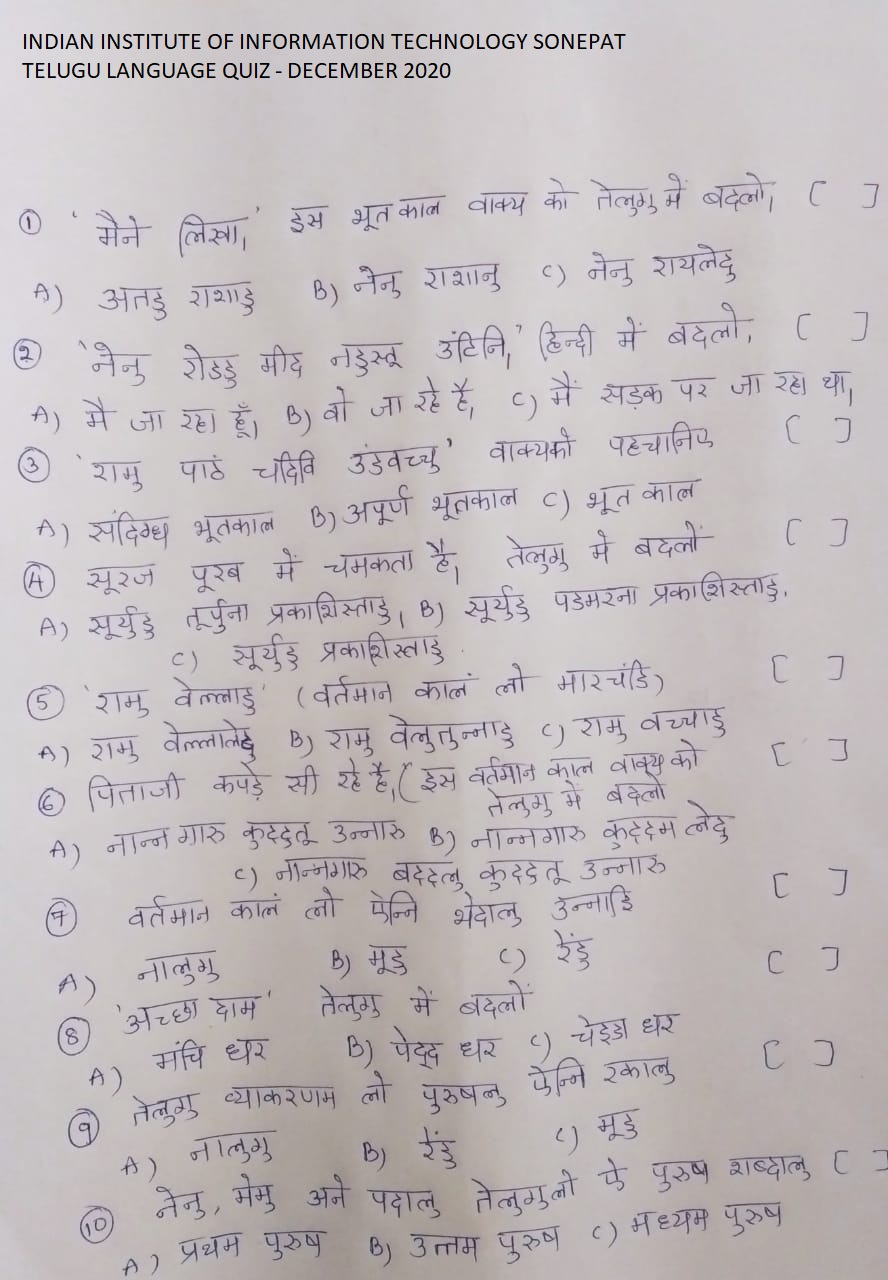 INDIAN INSTITUTE OF INFORMATION TECHNOLOGY SONEPAT
TELUGU LANGUAGE QUIZ - DECEMBER 2020
① 'मैने लिखा,' इस भूत काल वाक्य को तेलुगु में बदलो, [ ]
A) अतडु राशाडु B) नेनु राशानु C) नेनु रायलेदु
② 'नेनु रोडडु मीद नडुस्तू उंटिनि,' हिन्दी में बदलो, [ ]
A) मै जा रहा हूँ, B) वो जा रहे है, C) मैं सड़क पर जा रहा था,
③ 'रामु पाठं चदिवि उंडवच्चु' वाक्यको पहचानिए [ ]
A) संदिग्ध भूतकाल B) अपूर्ण भूतकाल C) भूत काल
④ सूरज पूरब में चमकता है, तेलुगु मे बदलों [ ]
A) सूर्युडु तूर्पुना प्रकाशिस्ताडु, B) सूर्युडु पडमरना प्रकाशिस्ताडु.
C) सूर्युडु प्रकाशिस्ताडु.
⑤ 'रामु वेल्लाडु' (वर्तमान कालं लो मारचंडि) [ ]
A) रामु वेल्लालेदु B) रामु वेलुतुन्नाडु C) रामु वच्चाडु
⑥ पिताजी कपड़े सी रहे है, (इस वर्तमान काल वाक्य को [ ]
तेलुगु में बदलो
A) नान्न गारु कुददुतू उन्नारु B) नान्नगारु कुददम लेदु
C) नान्नगारु बददलु कुददुतू उन्नारु
⑦ वर्तमान कालं लो ऐन्नि भेदालु उन्नाइ [ ]
A) नालुगु B) मूडु C) रेंडु [ ]
⑧ 'अच्छा दाम' तेलुगु में बदलों
A) मंचि धर B) पेद्द धर C) चेड्डा धर
⑨ तेलुगु व्याकरणम लो पुरुषनु ऐन्नि रकालु [ ]
A) नालुगु B) रेंडु C) मूडु
⑩ नेनु, मेमु अने पदालु तेलुगुलो ऐ पुरुष शब्दालु [ ]
A) प्रथम पुरुष B) उत्तम पुरुष C) मध्यम पुरुष